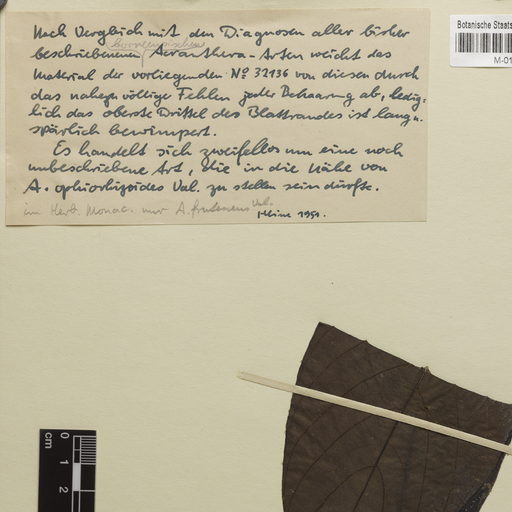 Nach Vergleich mit den Diagnosen aller bisher
borneensischen
beschriebenen Acranthera-Arten weicht das
Material der vorliegenden Nº 32136 von diesen durch
das nahezu völlige Fehlen jeder Behaarung ab, ledig-
lich das oberste Drittel des Blattrandes ist lang u.
spärlich bewimpert.
Es handelt sich zweifellos um eine noch
unbeschriebene Art, die in die Nähe von
A. ophiorhizoides Val. zu stellen sein dürfte.
im Herb. Monac. nur A. frutescens Val.
Heine 1951.
Botanische Staats
M-01
cm
0
1
2